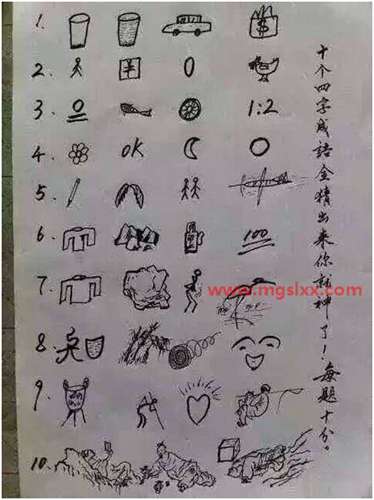 1.
2. 0
3. 0 1:2
4. OK
5.
6. 100
7.
8.
9.
10.
十个四字成語全猜出来你就神了！每题十分。
www.mgslxx.com